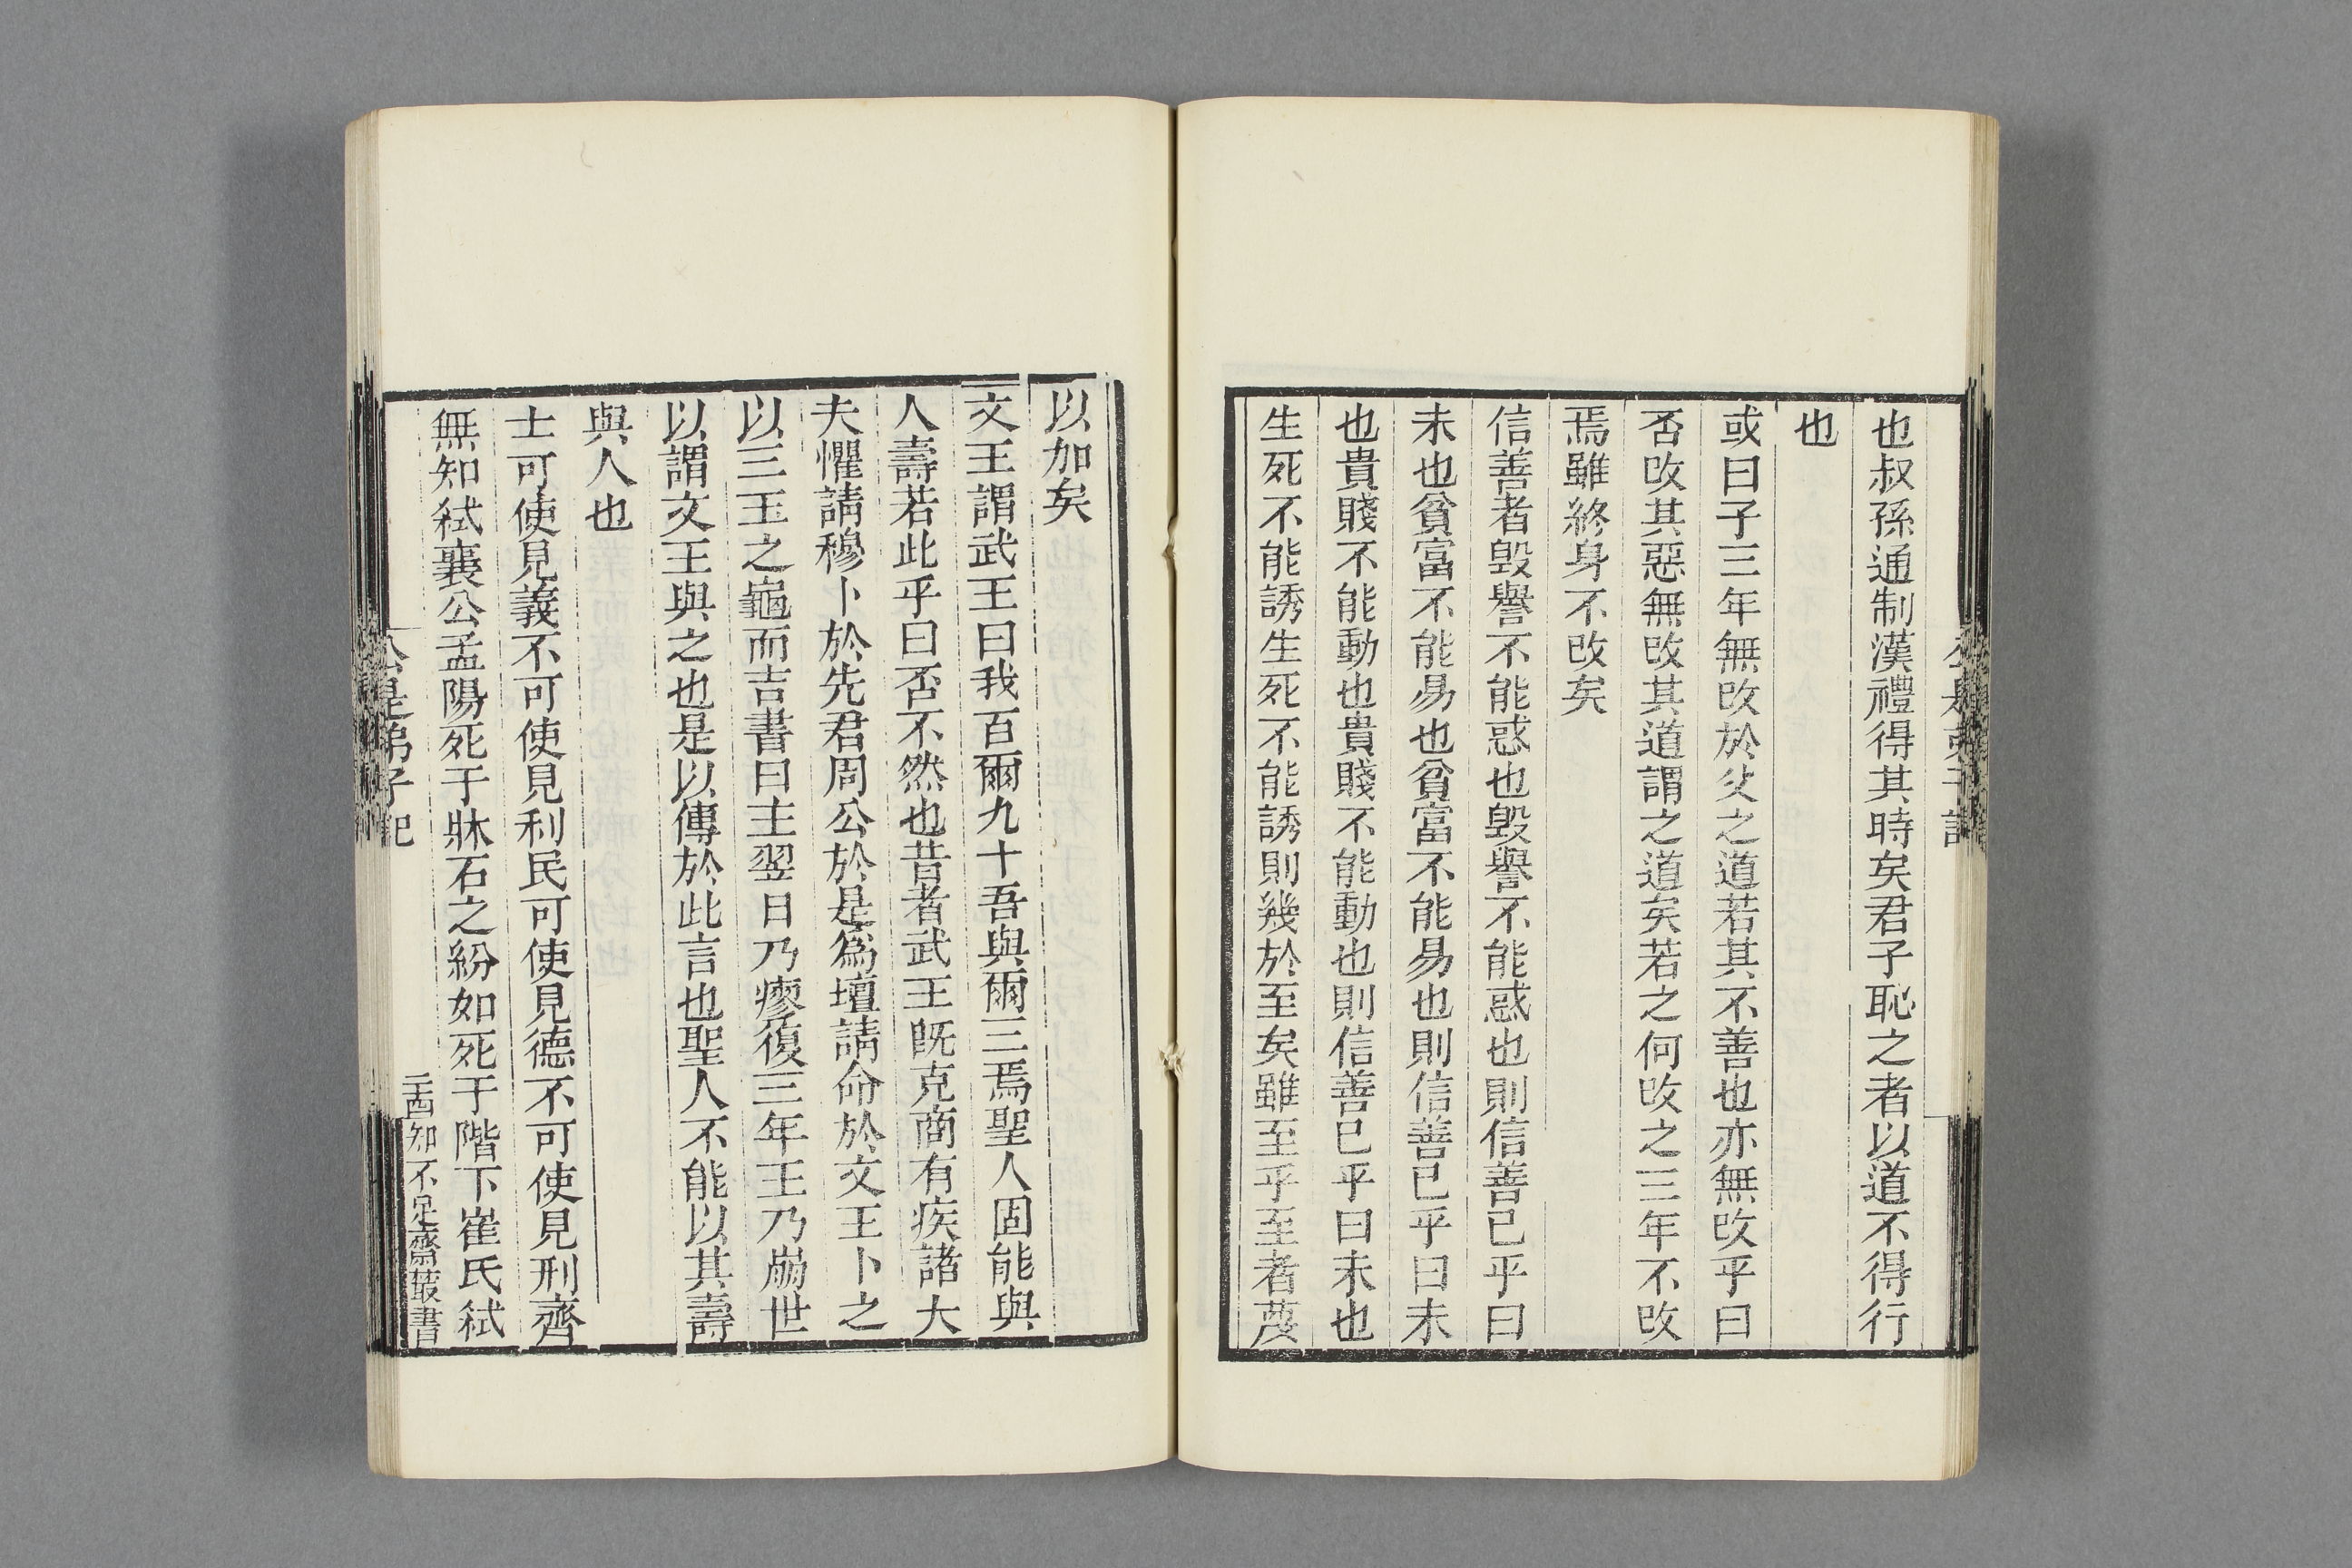 也叔孫通制漢禮得其時矣君子恥之者以道不得行
也
或曰子三年無改於父之道若其不善也亦無改乎曰
否改其惡無改其道謂之道矣若之何改之三年不改
焉雖終身不改矣
信善者毀譽不能惑也毀譽不能惑也則信善已乎曰
未也貧富不能易也貧富不能易也則信善已乎曰未
也貴賤不能動也貴賤不能動也則信善已乎曰未也
生死不能誘生死不能誘則幾於至矣雖至乎至者蔑
以加矣
文王謂武王曰我百爾九十吾與爾三焉聖人固能與
人壽若此乎曰否不然也昔者武王旣克商有疾諸大
夫懼請穆卜於先君周公於是爲壇請命於文王卜之
以三王之龜而吉書曰王翌日乃瘳復三年王乃崩世
以謂文王與之也是以傳於此言也聖人不能以其壽
與人也
士可使見義不可使見利民可使見德不可使見刑齊
無知弑襄公孟陽死于牀石之紛如死于階下崔氏弑
公是弟子記
知不足齋叢書